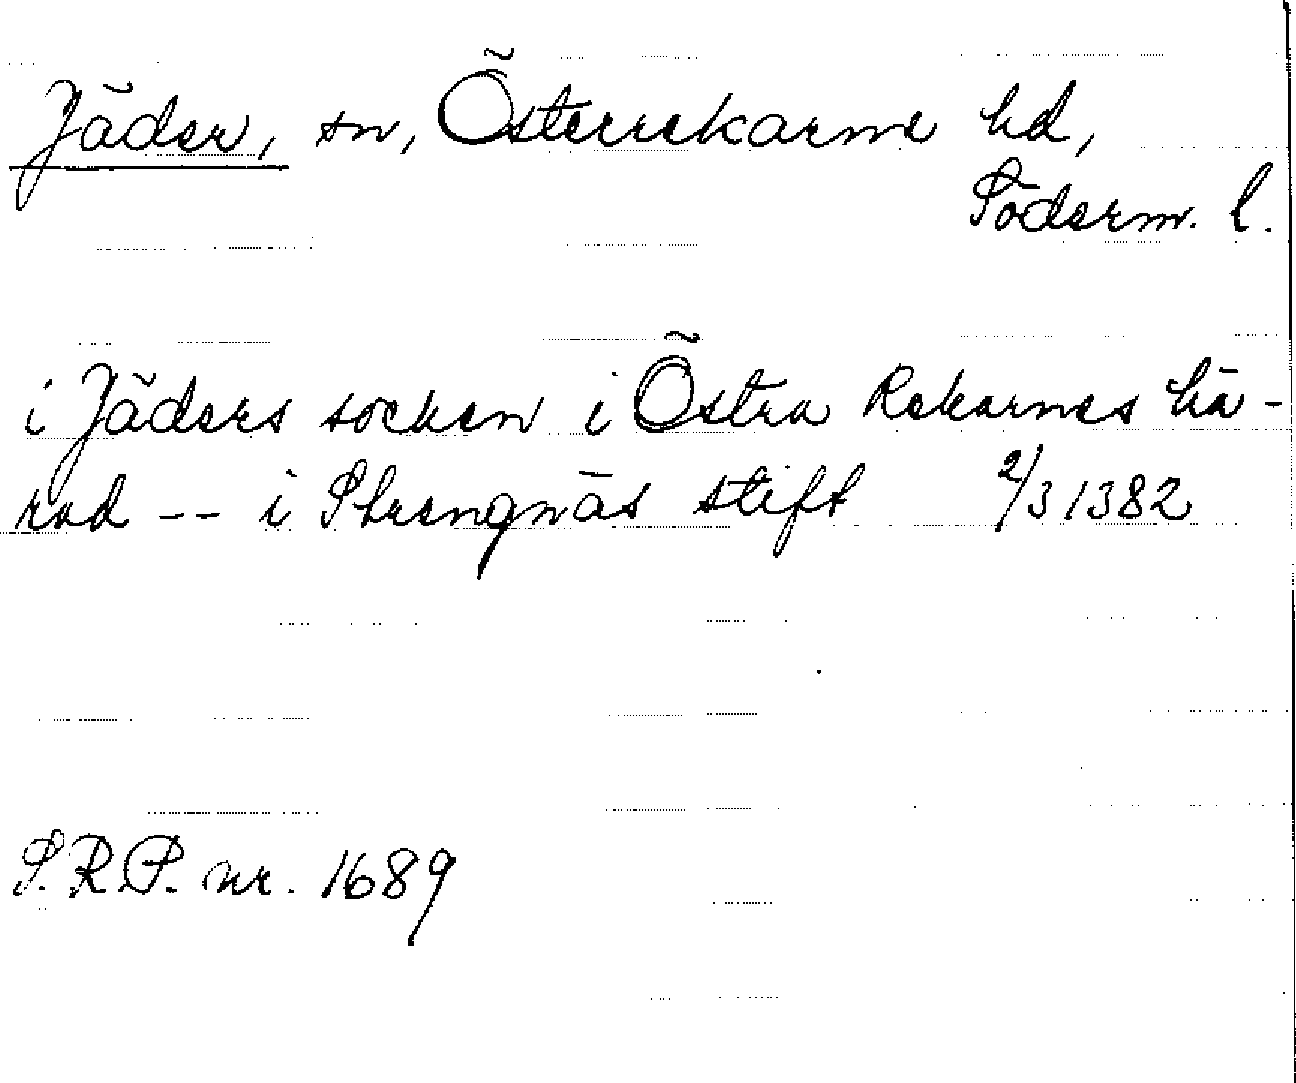 Jäder, sn, Österrekarne hd,
Söderm. l.
i Jäders socken i Östra Rekarnes hä-
rad -- i Strengnäs stift 2/3 1382
S.R.P. nr. 1689